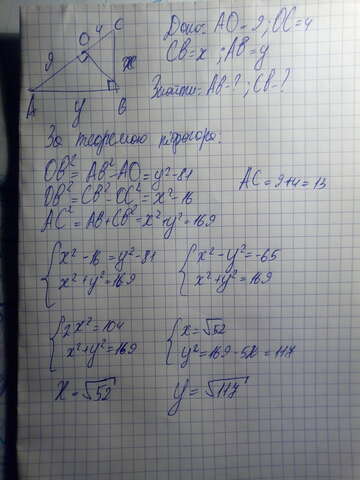 O 4 C
9 x
A y B
Дано: AO=9; OC=4
CB=x; AB=y
Знайти: AB-?; CB-?
За теоремою піфагора:
OB²=AB²-AO=y²-81
OB²=CB²-OC²=x²-16
AC=9+4=13
AC²=AB+CB²=x²+y²=169
{x²-16=y²-81
x²+y²=169
{x²-y²=-65
x²+y²=169
{2x²=104
x²+y²=169
{x=√52
y²=169-52=117
x=√52
y=√117